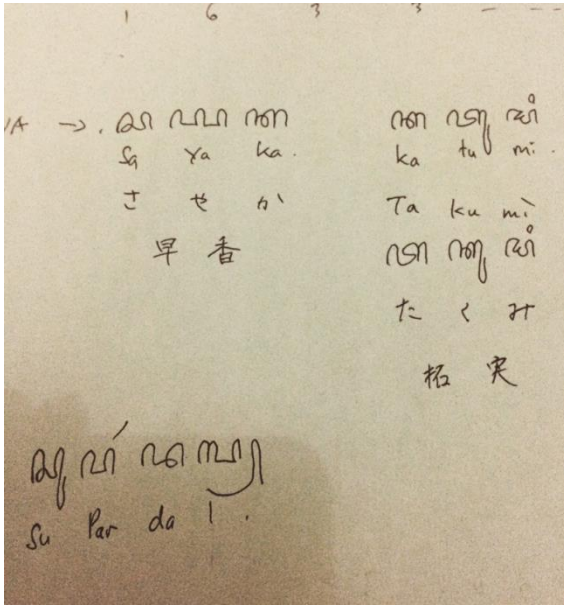 → . ꦱ ꦪ ꦏ
Sa Ya Ka.
さ や か
早 香
ꦏ ꦠꦸ ꦩꦶ
ka tu mi.
Ta ku mi
ꦠ ꦏꦸ ꦩꦶ
た く み
拓 実
ꦱꦸ ꦥꦂ ꦢ ꦭ꧀
Su Par da l.